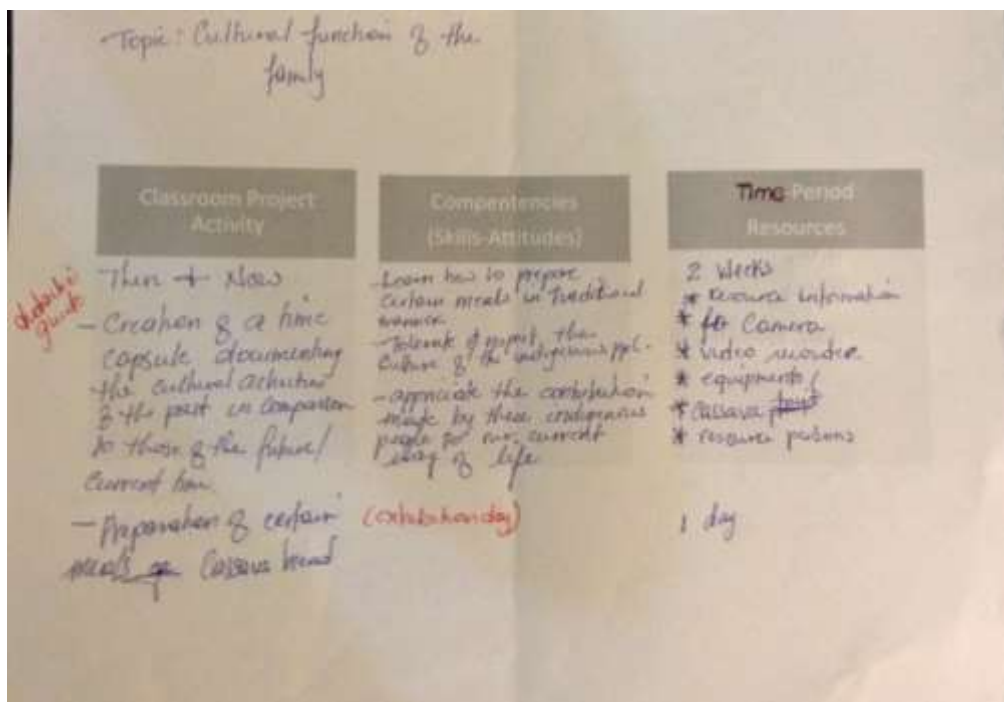 Topic: Cultural function of the
family
Classroom Project
Activity
Then + Now
- Creation of a time
capsule documenting
the cultural activities
of the past in comparison
to those of the future/
current time.
- Preparation of certain
meals Cassava bread
Compentencies
(Skills-Attitudes)
- Learn how to prepare
certain meals in Traditional
manner
- Tolerate & respect the
culture of the indigenous ppl.
- appreciate the contribution
made by these indigenous
people to our current
way of life
(exhibition day)
Time Period
Resources
2 weeks
* resource information
* Camera
* video recorder
* equipments/
* Cassava
* resource persons
1 day
guide